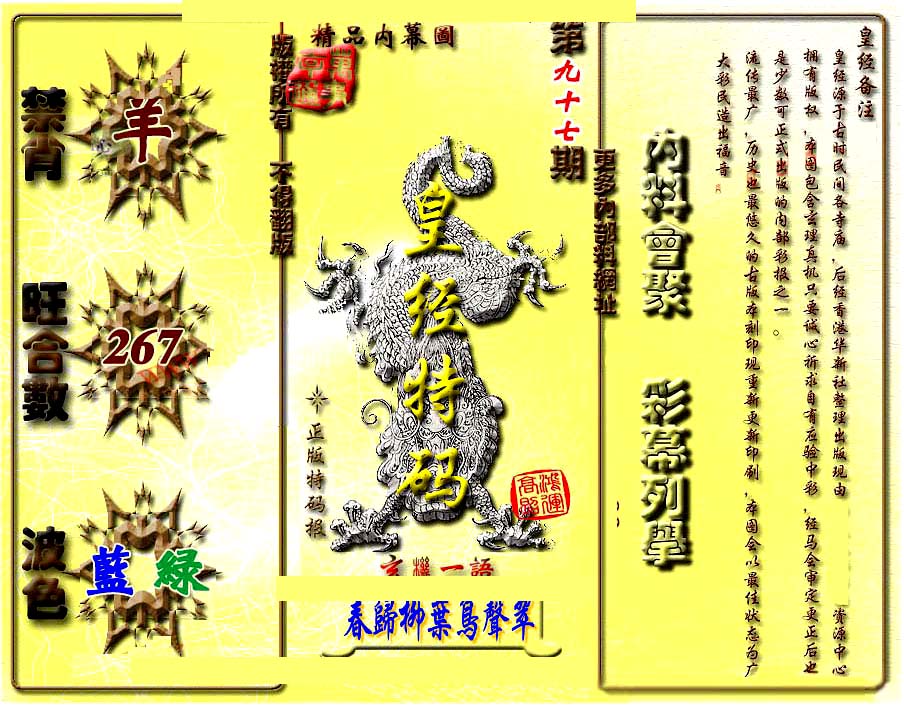 皇经备注
皇经源于古时民间各寺庙，后经香港华新社整理出版现由 资源中心
拥有版权，本图包含玄理真机只要诚心祈求自有应验中彩，经马会审定更正后也
是少数可正式出版的内部彩报之一。
流传最广，历史也最悠久的古版本刻印现重新更新印刷，本图会以最佳状态为广
大彩民造出福音
内料會聚
彩幕列舉
更多內部料網址
第九十七期
精品内幕圖
皇经特码
正版特码报
鴻運高照
玄機一語
春歸柳葉鳥聲翠
版權所有 不得翻版
禁肖
羊
旺合數
267
波色
藍 綠